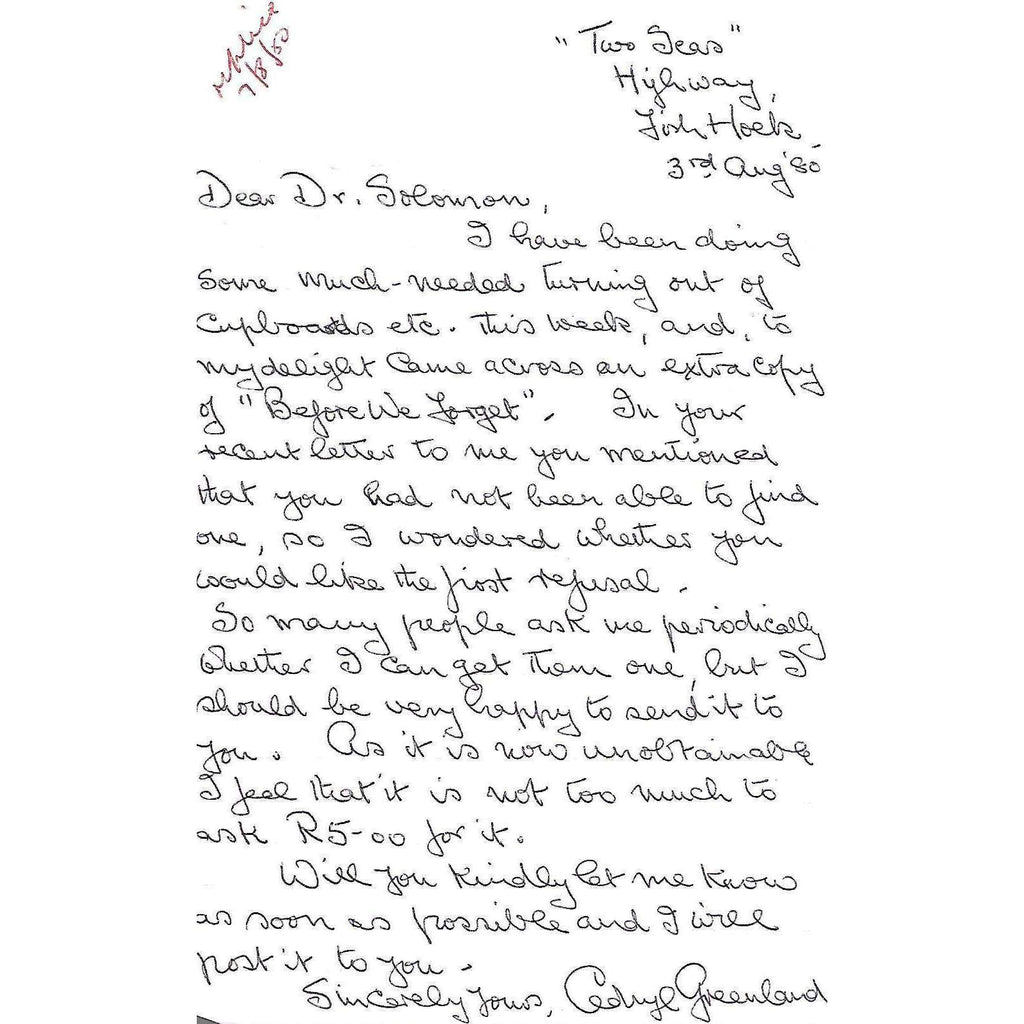 replied
7/8/80
"Two Seas"
Highway,
Fish Hoek
3rd Aug '80
Dear Dr. Solomon,
I have been doing
some much-needed turning out of
cupboards etc. this week, and, to
my delight came across an extra copy
of "Before We Forget". In your
recent letter to me you mentioned
that you had not been able to find
one, so I wondered whether you
would like the first refusal.
So many people ask me periodically
whether I can get them one, but I
should be very happy to send it to
you. As it is now unobtainable
I feel that it is not too much to
ask R5-00 for it.
Will you kindly let me know
as soon as possible and I will
post it to you.
Sincerely yours, Cedryl Greenland